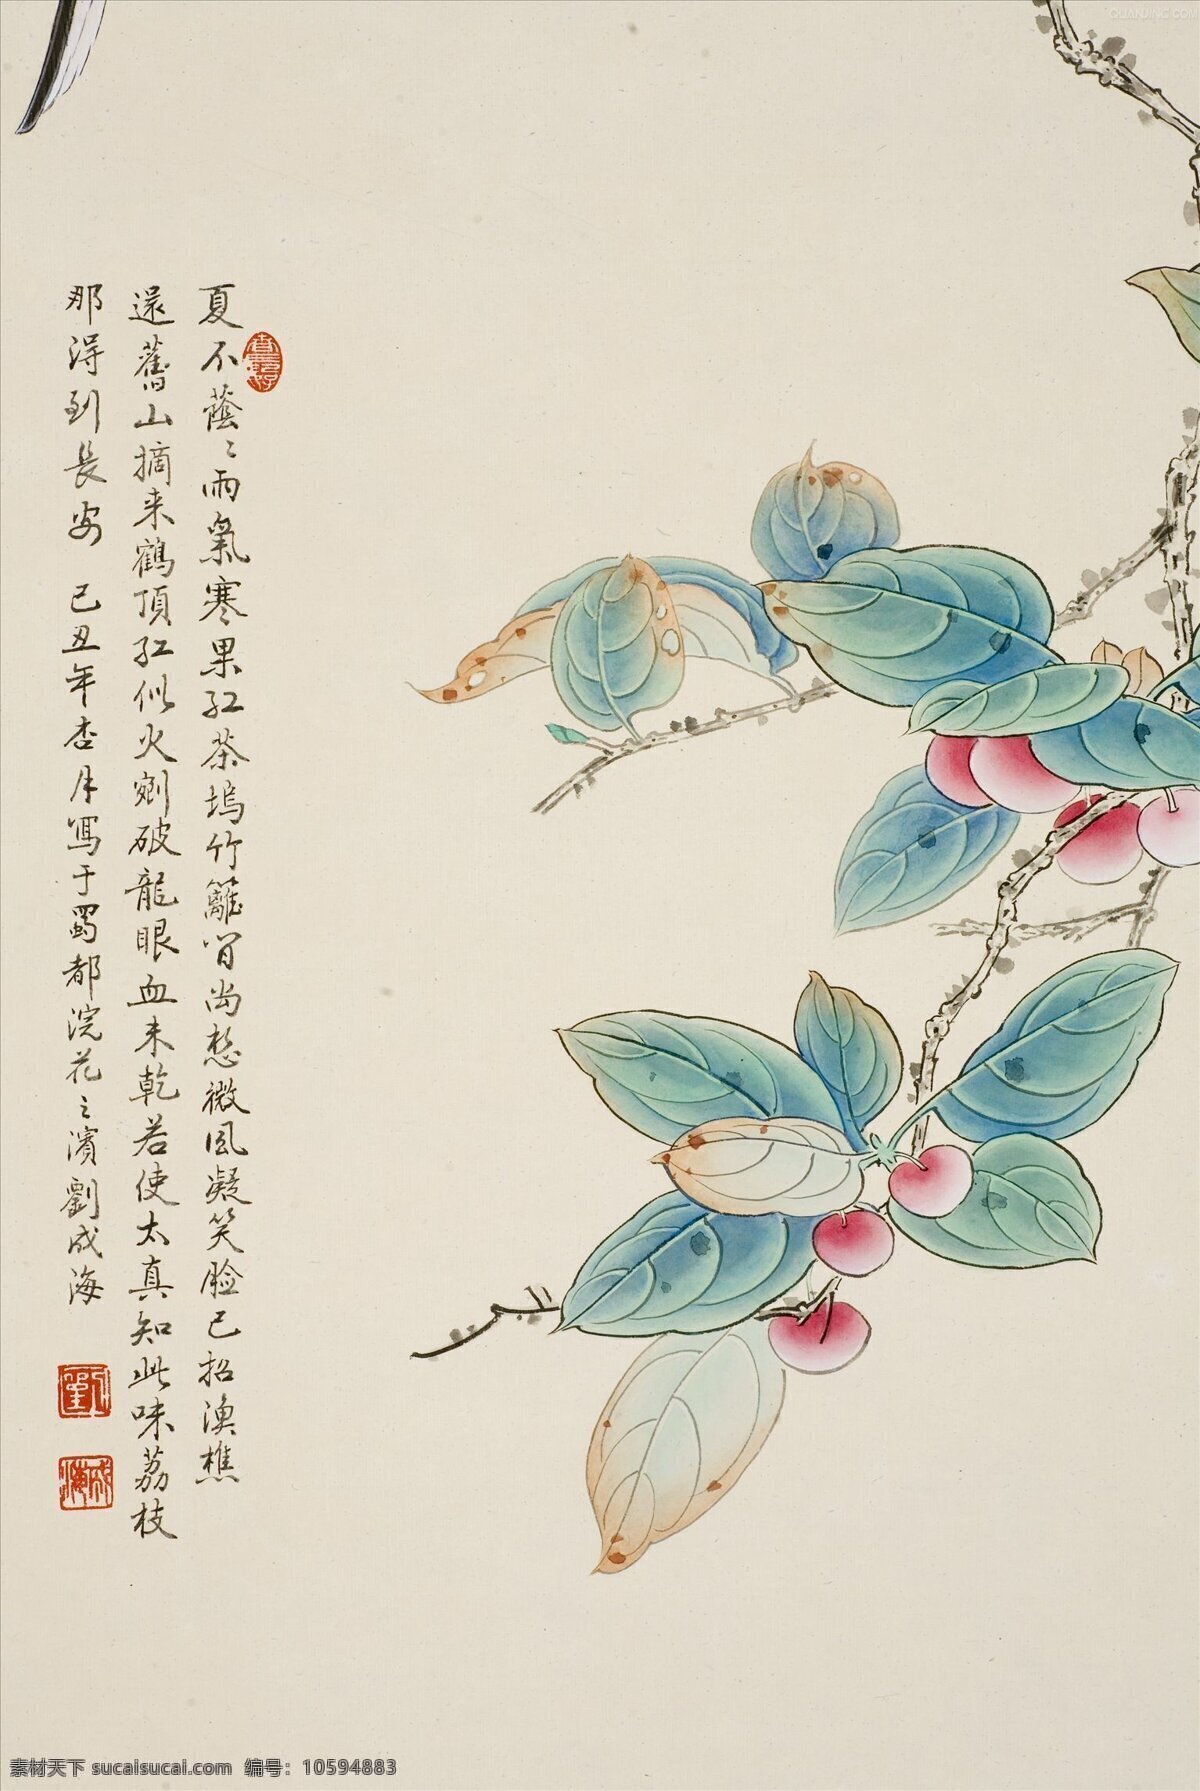 夏木蔭〻雨氣寒果紅茶塢竹籬間尚愁微風凝笑臉已招漁樵
還舊山摘来鶴頂紅似火剜破龍眼血未乾若使太真知此味荔枝
那得到長安 己丑年杏月寫于蜀都浣花之濱劉成海
劉
成海
QUANJING.COM
素材天下 sucaisucai.com 编号：10594883